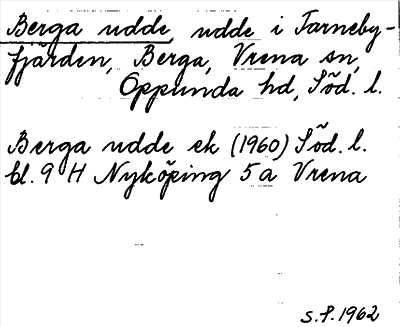 Berga udde, udde i Tarneby-
fjärden, Berga, Vrena sn,
Oppunda hd, Söd. l.
Berga udde ek (1960) Söd. l.
bl. 9 H Nyköping 5a Vrena
S.P. 1962